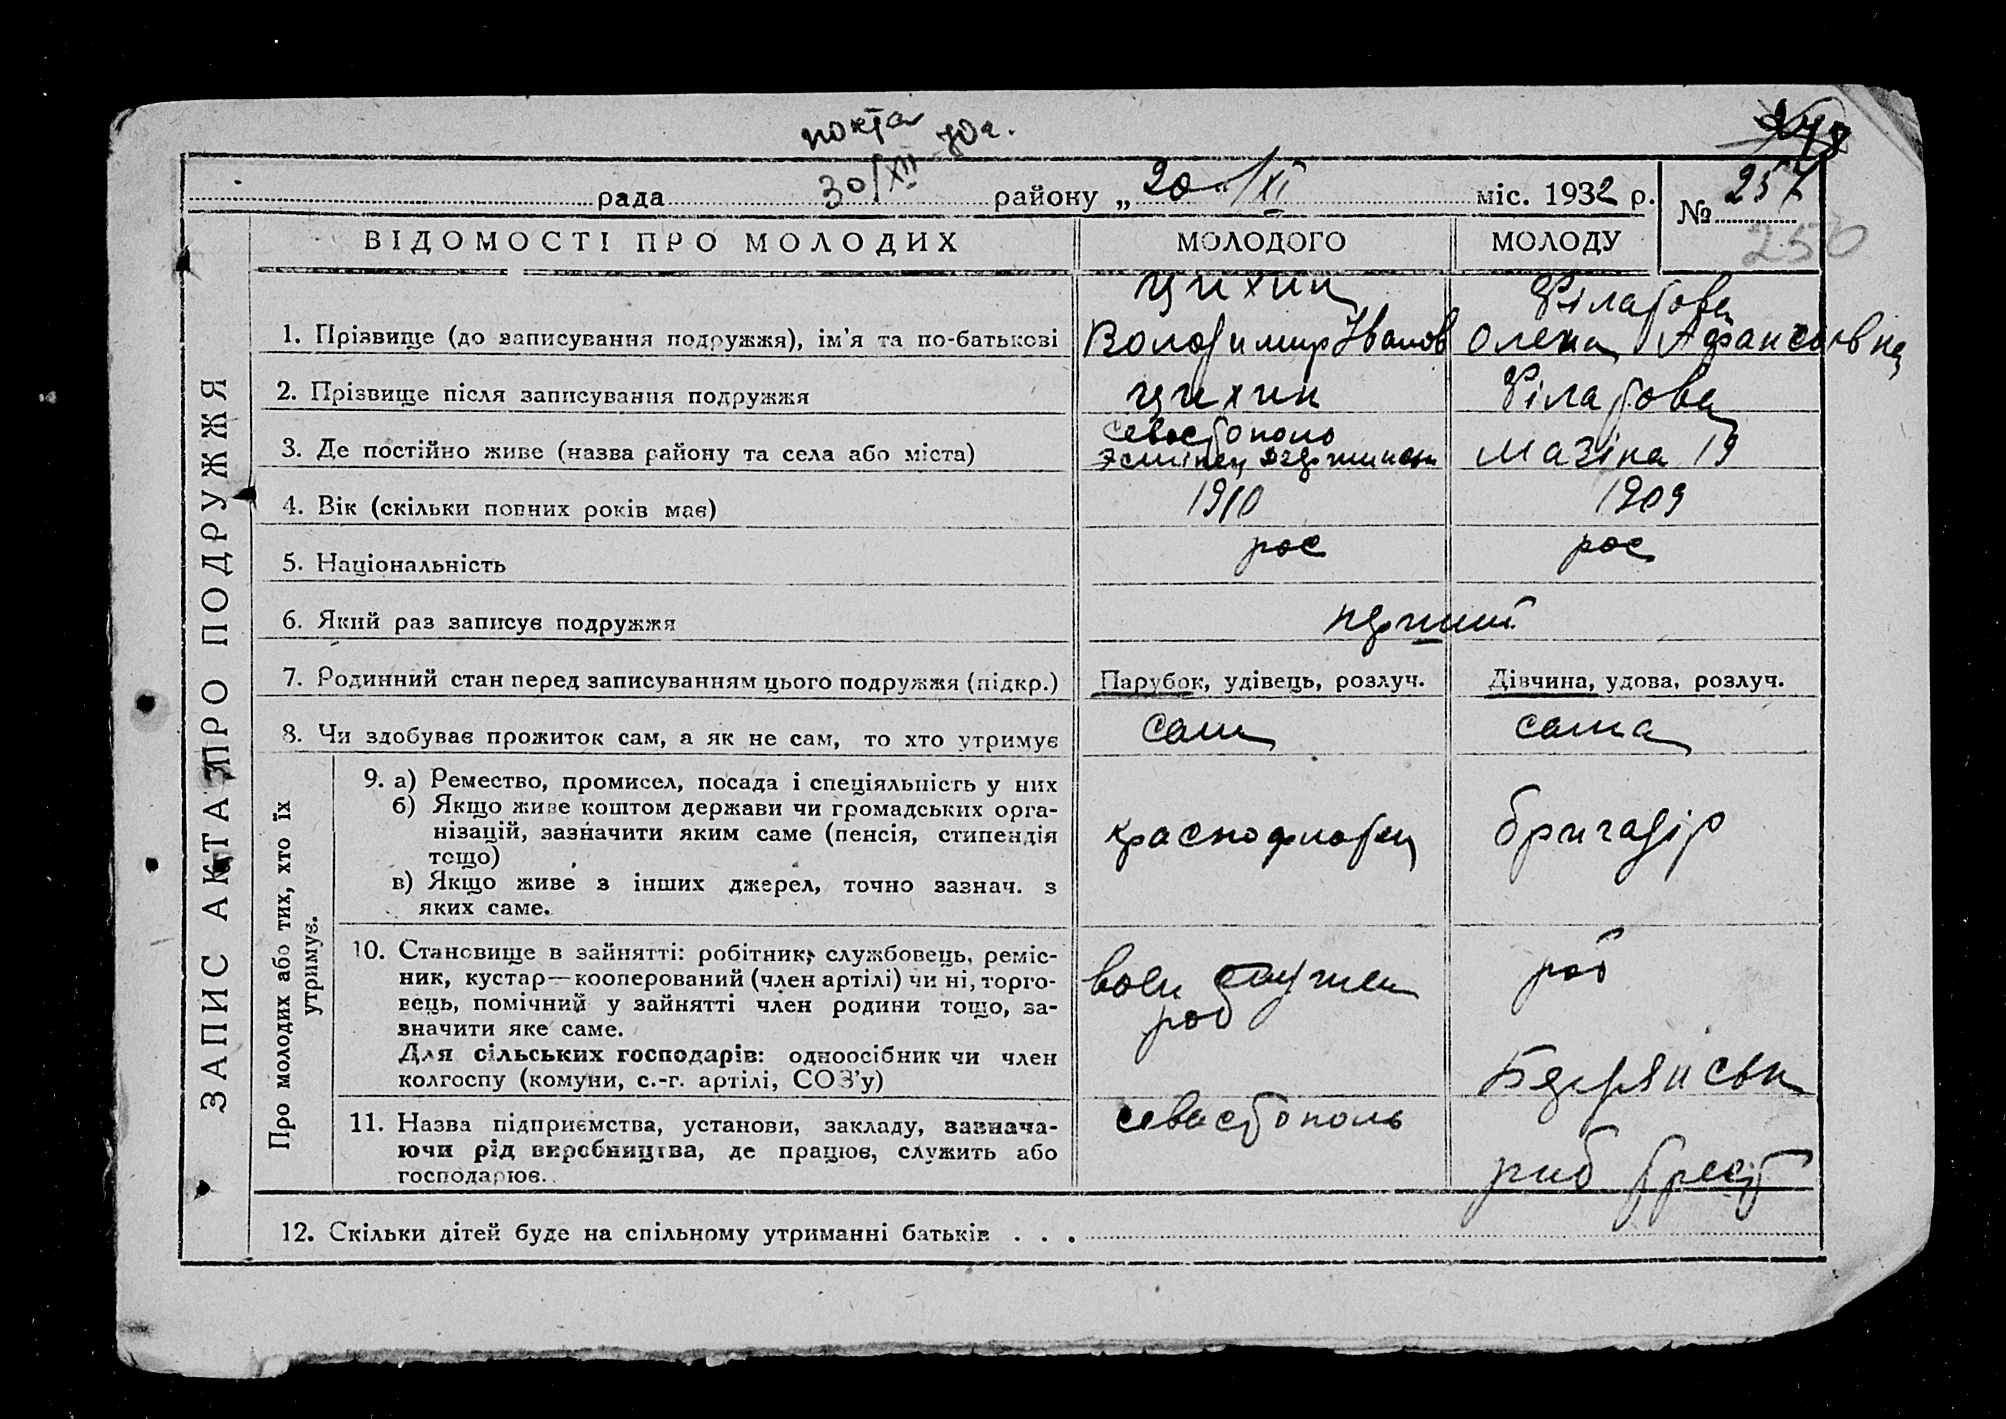 248
30/XII
рада району „ 20 " /XI міс. 1932 р. № 257
250
ВІДОМОСТІ ПРО МОЛОДИХ МОЛОДОГО МОЛОДУ
ЗАПИС АКТА ПРО ПОДРУЖЖЯ
Цихин Філатова
1. Прізвище (до записування подружжя), ім'я та по-батькові Володимир Іванов Олена Афанасіївна
2. Прізвище після записування подружжя Цихин Філатова
Севастополь
3. Де постійно живе (назва району та села або міста) Эсмінец Мазіна 19
4. Вік (скільки повних років має) 1910 1909
5. Національність рос рос
6. Який раз записує подружжя перший
7. Родинний стан перед записуванням цього подружжя (підкр.) Парубок, удівець, розлуч. Дівчина, удова, розлуч.
8. Чи здобуває прожиток сам, а як не сам, то хто утримує сам сама
Про молодих або тих, хто їх
утримує.
9. а) Ремество, промисел, посада і спеціяльність у них
б) Якщо живе коштом держави чи громадських орга-
нізацій, зазначити яким саме (пенсія, стипендія
тощо)
в) Якщо живе з інших джерел, точно зазнач. з
яких саме.
краснофлотец бригадір
10. Становище в зайнятті: робітник, службовець, реміс-
ник, кустар—кооперований (член артілі) чи ні, торго-
вець, помічний у зайнятті член родини тощо, за-
значити яке саме.
Для сільських господарів: одноосібник чи член
колгоспу (комуни, с.-г. артілі, СОЗ'у)
воен служ
роб
роб
11. Назва підприємства, установи, закладу, зазнача-
ючи рід виробництва, де працює, служить або
господарює.
Севастополь
Бердянськ
риб трест
12. Скільки дітей буде на спільному утриманні батьків . . .